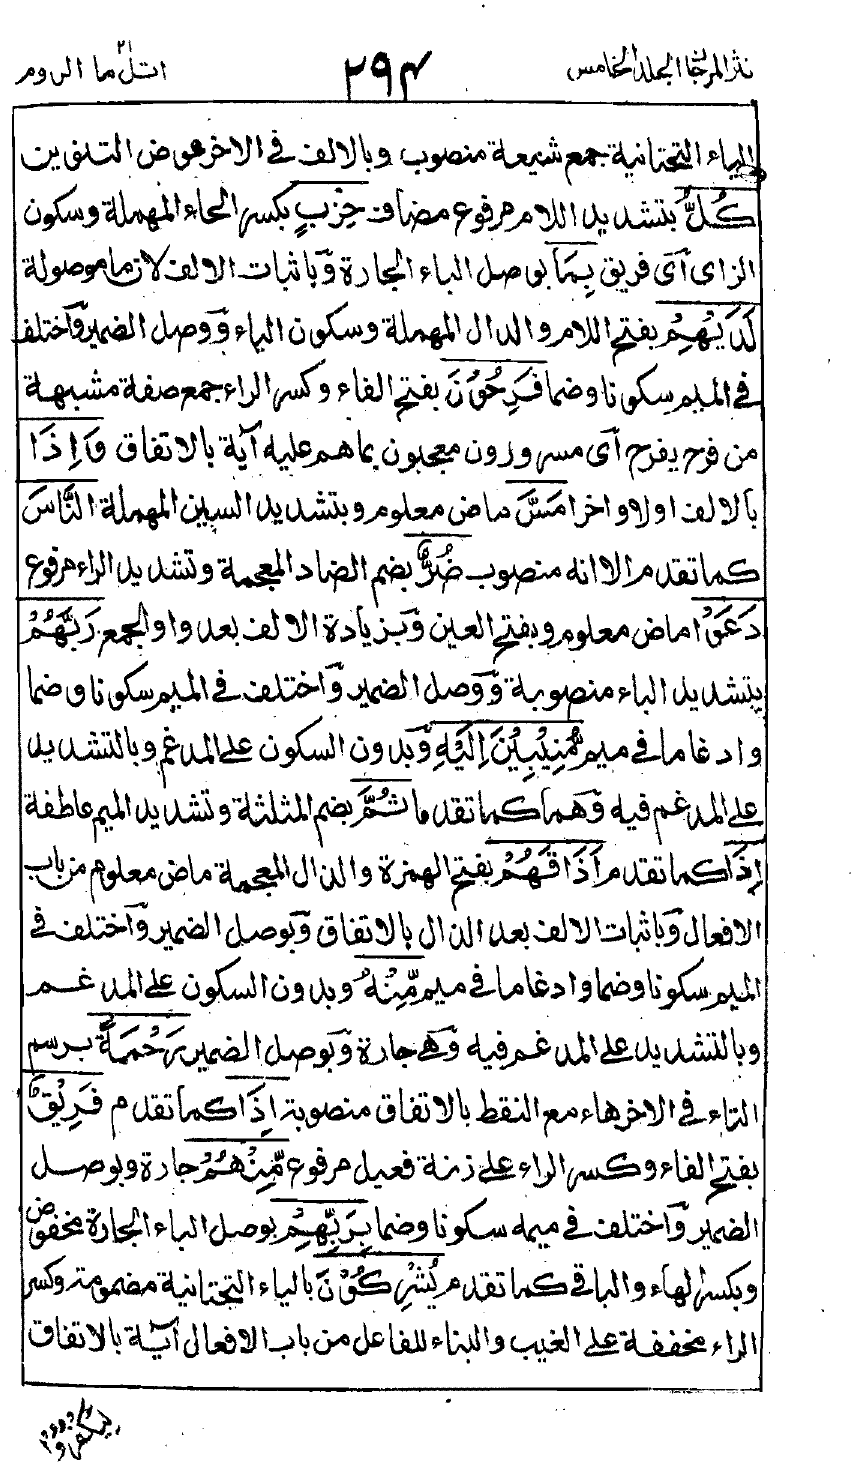 نثر المرجان الجلد الخامس
٢٩٤
اتل ما ٢١ الروم
الياء التحتانية جمع شيعة منصوب وبالالف في الاخر عوض التنوين
كُلُّ بتشديد اللام مرفوع مضاف حِزْبٍ بكسر الحاء المهملة وسكون
الزاى آى فريق بِمَا بوصل الباء الجارة وَباثبات الالف لان ما موصولة
لَدَيْهِمْ بفتح اللام والدال المهملة وسكون الياء وَوصل الضمير وَاختلف
في الميم سكونا وضما فَرِحُوْنَ بفتح الفاء وكسر الراء جمع صفة مشبهة
من فرح يفرح آى مسرورون معجبون بما هم عليه آية بالاتفاق وَاِذَا
بالالف اولا واخرا مَسَّ ماض معلوم وبتشديد السين المهملة النَّاسَ
كما تقدم الا انه منصوب ضُرٌّ بضم الضاد المعجمة وتشديد الراء مرفوع
دَعَوْا ماض معلوم وبفتح العين وَبزيادة الالف بعد واو الجمع رَبَّهُمْ
بتشديد الباء منصوبة وَوصل الضمير وَاختلف في الميم سكونا وضما
وادغاما في ميم مُّنِيْبِيْنَ اِلَيْهِ وَبدون السكون على المدغم وبالتشديد
على المدغم فيه وَهما كما تقدما ثُمَّ بضم المثلثة وتشديد الميم عاطفة
اِذَا كما تقدم اَذَاقَهُمْ بفتح الهمزة والذال المعجمة ماض معلوم من باب
الافعال وَباثبات الالف بعد الذال بالاتفاق وَبوصل الضمير وَاختلف في
الميم سكونا وضما وادغاما في ميم مِّنْهُ وبدون السكون على المدغم
وبالتشديد على المدغم فيه وَهي جارة وَبوصل الضمير رَحْمَةً برسم
التاء في الاخر هاء مع النقط بالاتفاق منصوبة اِذَا كما تقدم فَرِيْقٌ
بفتح الفاء وكسر الراء على زنة فعيل مرفوع مِّنْهُمْ جارة وبوصل
الضمير وَاختلف في ميمه سكونا وضما بِرَبِّهِمْ بوصل الباء الجارة مخفوض
وبكسر الهاء والباقي كما تقدم يُشْرِكُوْنَ بالياء التحتانية مضمومة وكسر
الراء مخففة على الغيب والبناء للفاعل من باب الافعال آية بالاتفاق